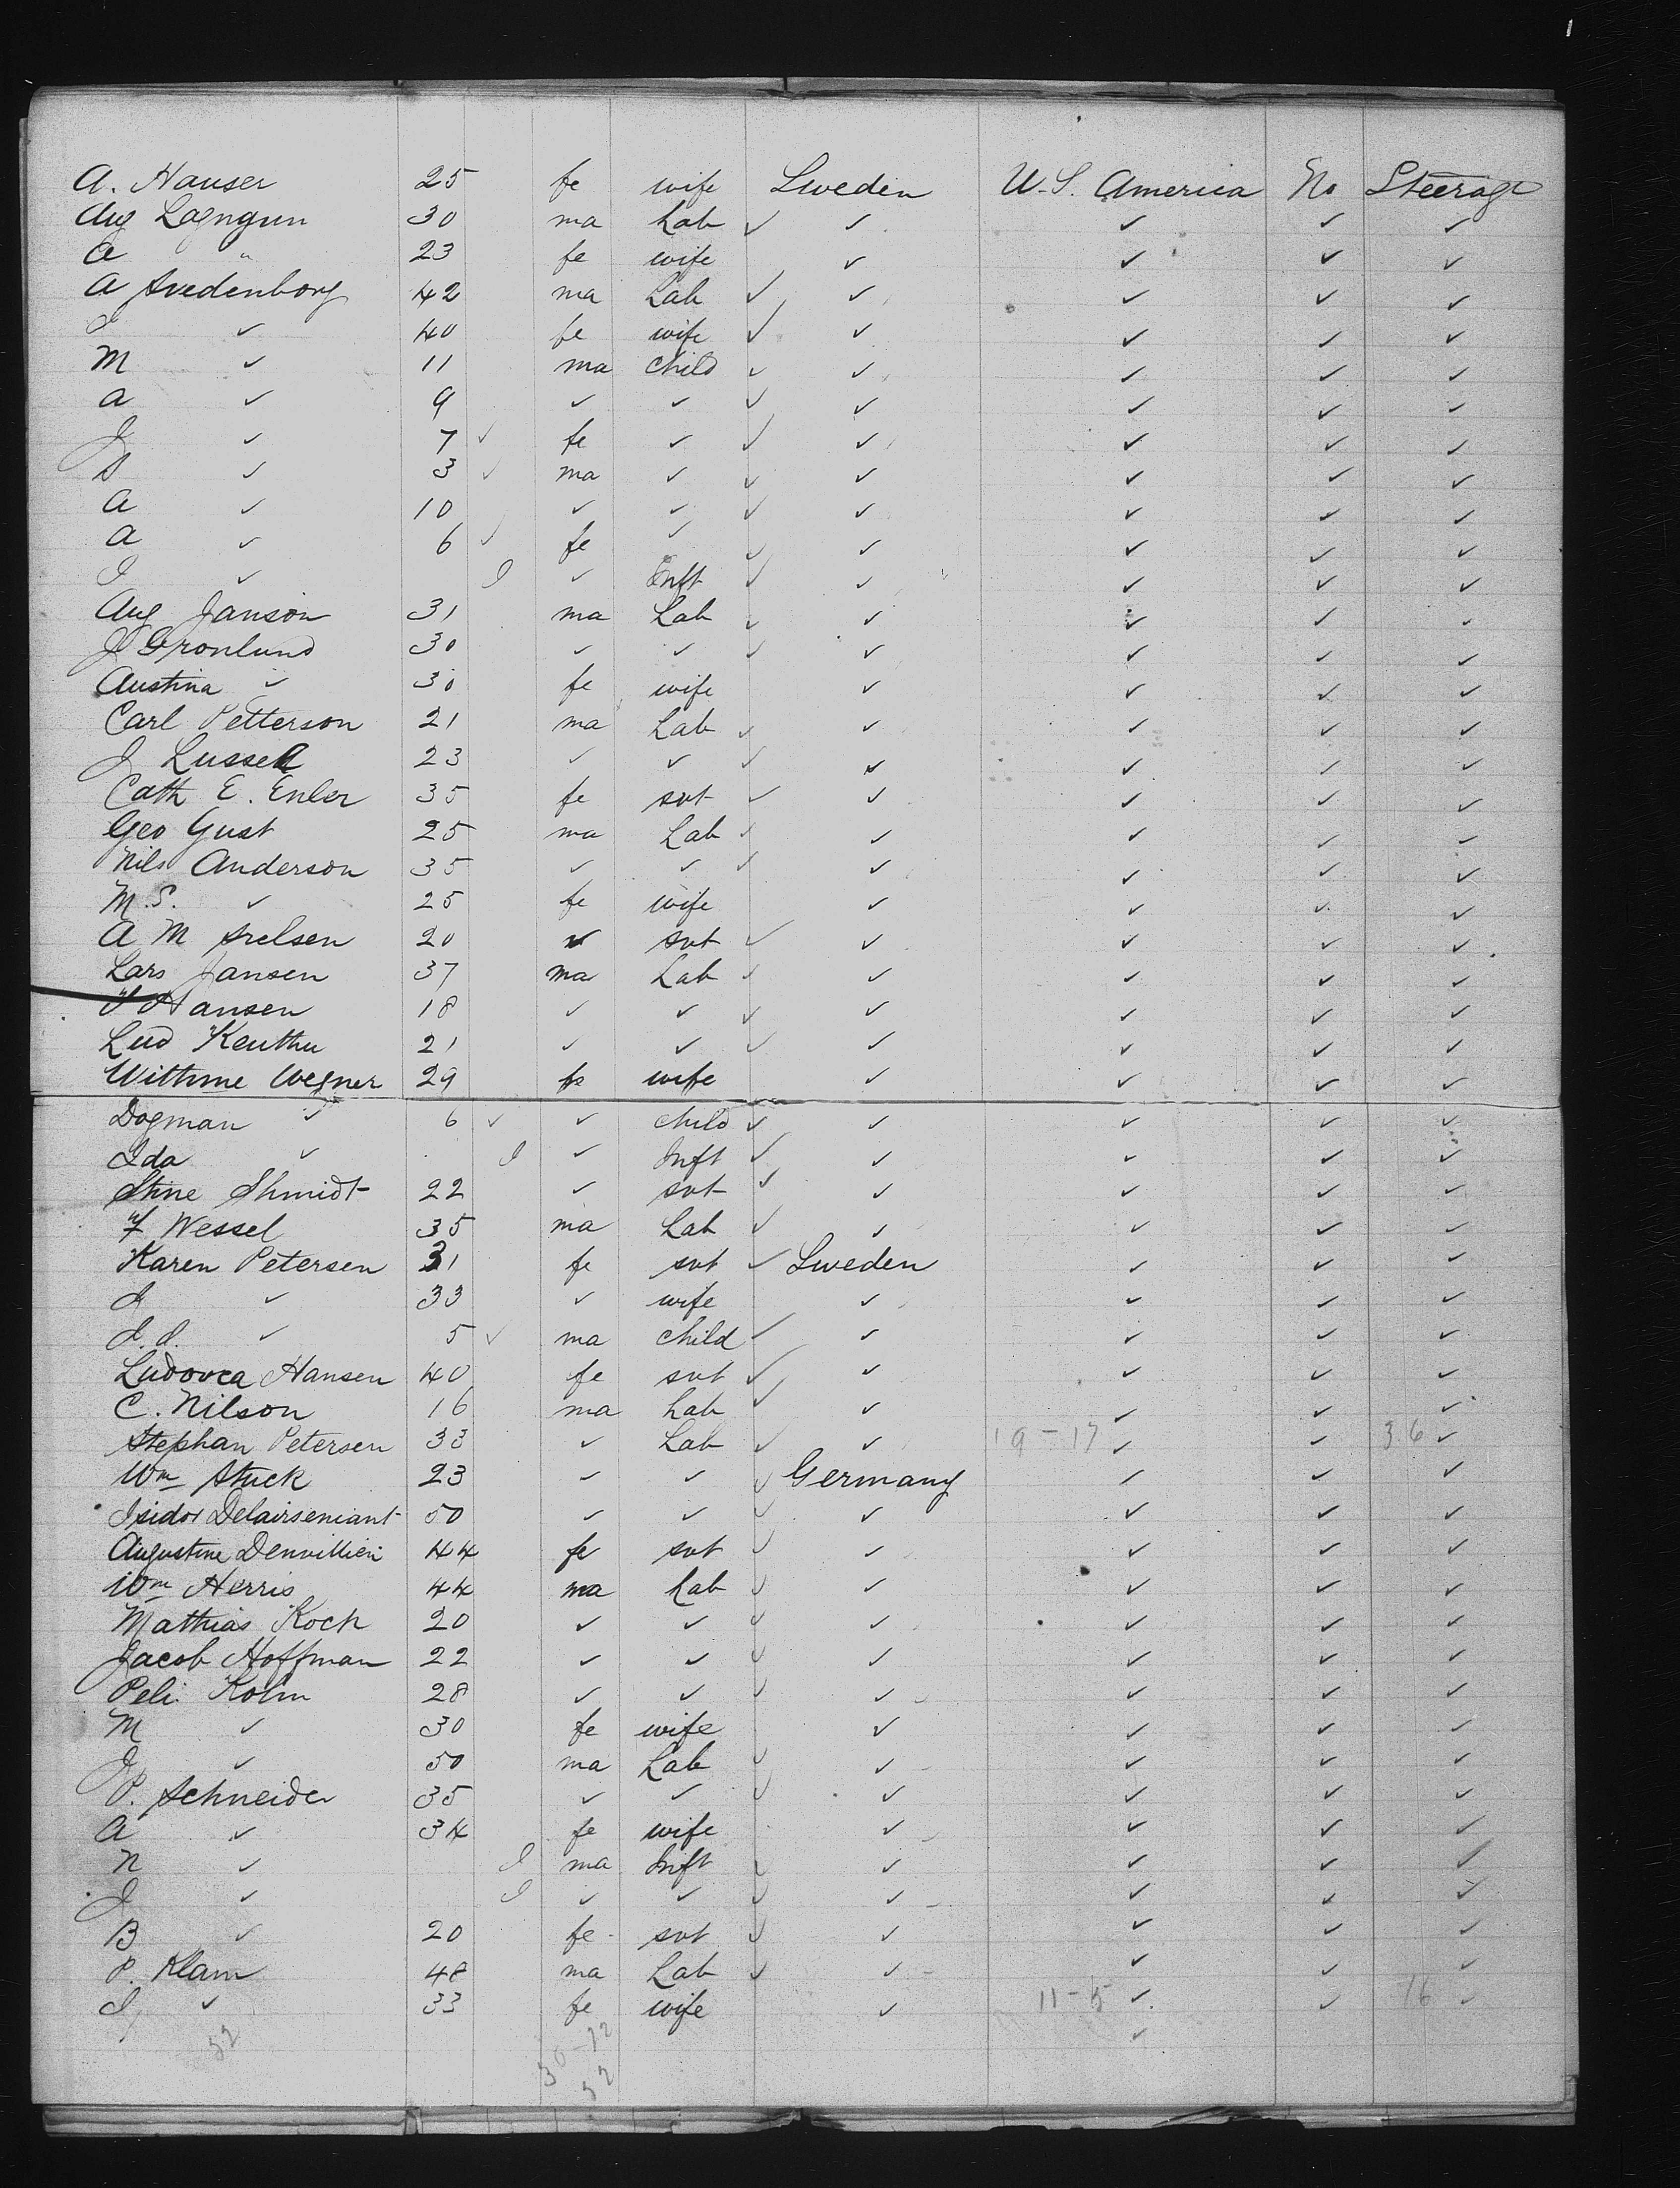 A. Hauser 25 fe wife Sweden U.S. America No Steerage
Aug Lagngun 30 ma Lab ✓ ✓ ✓ ✓ ✓
A " 23 fe wife ✓ ✓ ✓ ✓
A Svedenborg 42 ma Lab ✓ ✓ ✓ ✓ ✓
I ✓ 40 fe wife ✓ ✓ ✓ ✓ ✓
M ✓ 11 ma child ✓ ✓ ✓ ✓ ✓
A ✓ 9 ✓ ✓ ✓ ✓ ✓ ✓ ✓
J ✓ 7 ✓ fe ✓ ✓ ✓ ✓ ✓ ✓
S ✓ 3 ✓ ma ✓ ✓ ✓ ✓ ✓ ✓
A ✓ 10 ✓ ✓ ✓ ✓ ✓ ✓ ✓
A ✓ 6 ✓ fe ✓ ✓ ✓ ✓ ✓ ✓
I ✓ I ✓ Inft ✓ ✓ ✓ ✓ ✓
Aug Janson 31 ma Lab ✓ ✓ ✓ ✓ ✓
J Gronlund 30 ✓ ✓ ✓ ✓ ✓ ✓ ✓
Austina ✓ 30 fe wife ✓ ✓ ✓ ✓
Carl Petterson 21 ma Lab ✓ ✓ ✓ ✓ ✓
J Lussea 23 ✓ ✓ ✓ ✓ ✓ ✓ ✓
Cath E. Enler 35 fe svt ✓ ✓ ✓ ✓ ✓
Geo Gust 25 ma Lab ✓ ✓ ✓ ✓ ✓
Nils Anderson 35 ✓ ✓ ✓ ✓ ✓ ✓ ✓
M.S. ✓ 25 fe wife ✓ ✓ ✓ ✓
A M Srelsen 20 ✓ svt ✓ ✓ ✓ ✓ ✓
Lars Jansen 37 ma Lab ✓ ✓ ✓ ✓ ✓
Hansen 18 ✓ ✓ ✓ ✓ ✓ ✓ ✓
Lud Keuthu 21 ✓ ✓ ✓ ✓ ✓ ✓ ✓
Withme Wegner 29 fe wife ✓ ✓ ✓ ✓
Dogman ✓ 6 ✓ ✓ child ✓ ✓ ✓ ✓ ✓
Ida ✓ I ✓ Inft ✓ ✓ ✓ ✓ ✓
Stine Shmidt 22 ✓ svt ✓ ✓ ✓ ✓ ✓
F Wessel 35 ma Lab ✓ ✓ ✓ ✓ ✓
Karen Petersen 31 fe svt ✓ Sweden ✓ ✓ ✓
J ✓ 33 ✓ wife ✓ ✓ ✓ ✓
J.J. ✓ 5 ✓ ma child ✓ ✓ ✓ ✓ ✓
Ludovca Hansen 40 fe svt ✓ ✓ ✓ ✓ ✓
C. Nilson 16 ma Lab ✓ ✓ ✓ ✓ ✓
Stephan Petersen 33 ✓ Lab ✓ ✓ 19-17 ✓ ✓ 36 ✓
Wm Stuck 23 ✓ ✓ ✓ Germany ✓ ✓ ✓
Isidor Delairseniant 50 ✓ ✓ ✓ ✓ ✓ ✓ ✓
Augustine Denvillien 44 fe svt ✓ ✓ ✓ ✓ ✓
Wm Herris 44 ma Lab ✓ ✓ ✓ ✓ ✓
Mathias Koch 20 ✓ ✓ ✓ ✓ ✓ ✓ ✓
Jacob Hoffman 22 ✓ ✓ ✓ ✓ ✓ ✓ ✓
Peli Kolm 28 ✓ ✓ ✓ ✓ ✓ ✓ ✓
M ✓ 30 fe wife ✓ ✓ ✓ ✓
J ✓ 50 ma Lab ✓ ✓ ✓ ✓ ✓
P. Schneider 35 ✓ ✓ ✓ ✓ ✓ ✓ ✓
A ✓ 34 fe wife ✓ ✓ ✓ ✓
N ✓ I ma Inft ✓ ✓ ✓ ✓ ✓
J ✓ I ✓ ✓ ✓ ✓ ✓ ✓ ✓
B ✓ 20 fe svt ✓ ✓ ✓ ✓ ✓
P. Klam 48 ma Lab ✓ ✓ ✓ ✓ ✓
I ✓ 33 fe wife ✓ 11-5 ✓ ✓ 16 ✓
52 30-22 ✓
52